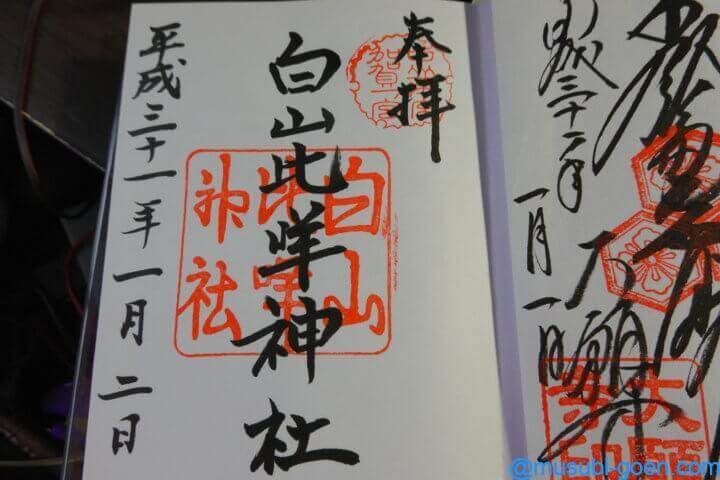 大願寺印
平成三十一年
一月一日
奉拝
白山比咩神社
白山比咩神社
平成三十一年一月二日
@musubi-goen.com